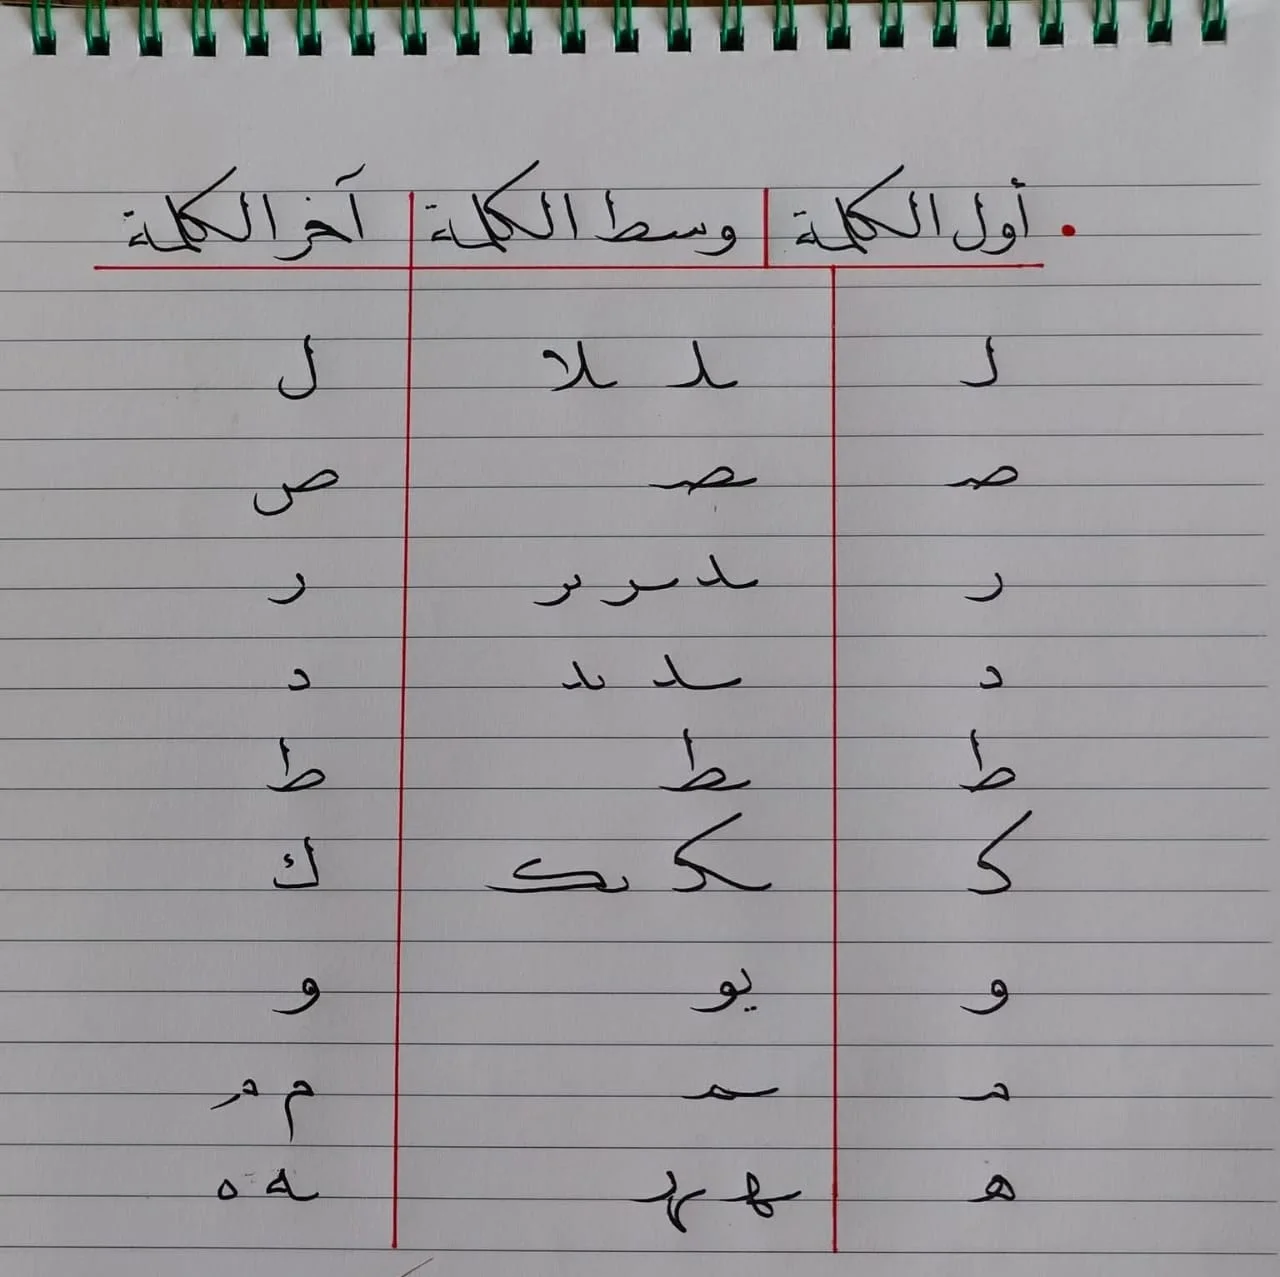 أول الكلمة وسط الكلمة آخر الكلمة
لـ ـلـ ـلا ل
صـ ـصـ ص
ر ـد ـر ـر ر
د ـد ـد د
ط ـط ط
كـ ـكـ ـك ك
و يو و
مـ ـمـ م م
هـ ـهـ ـهـ ـه ه